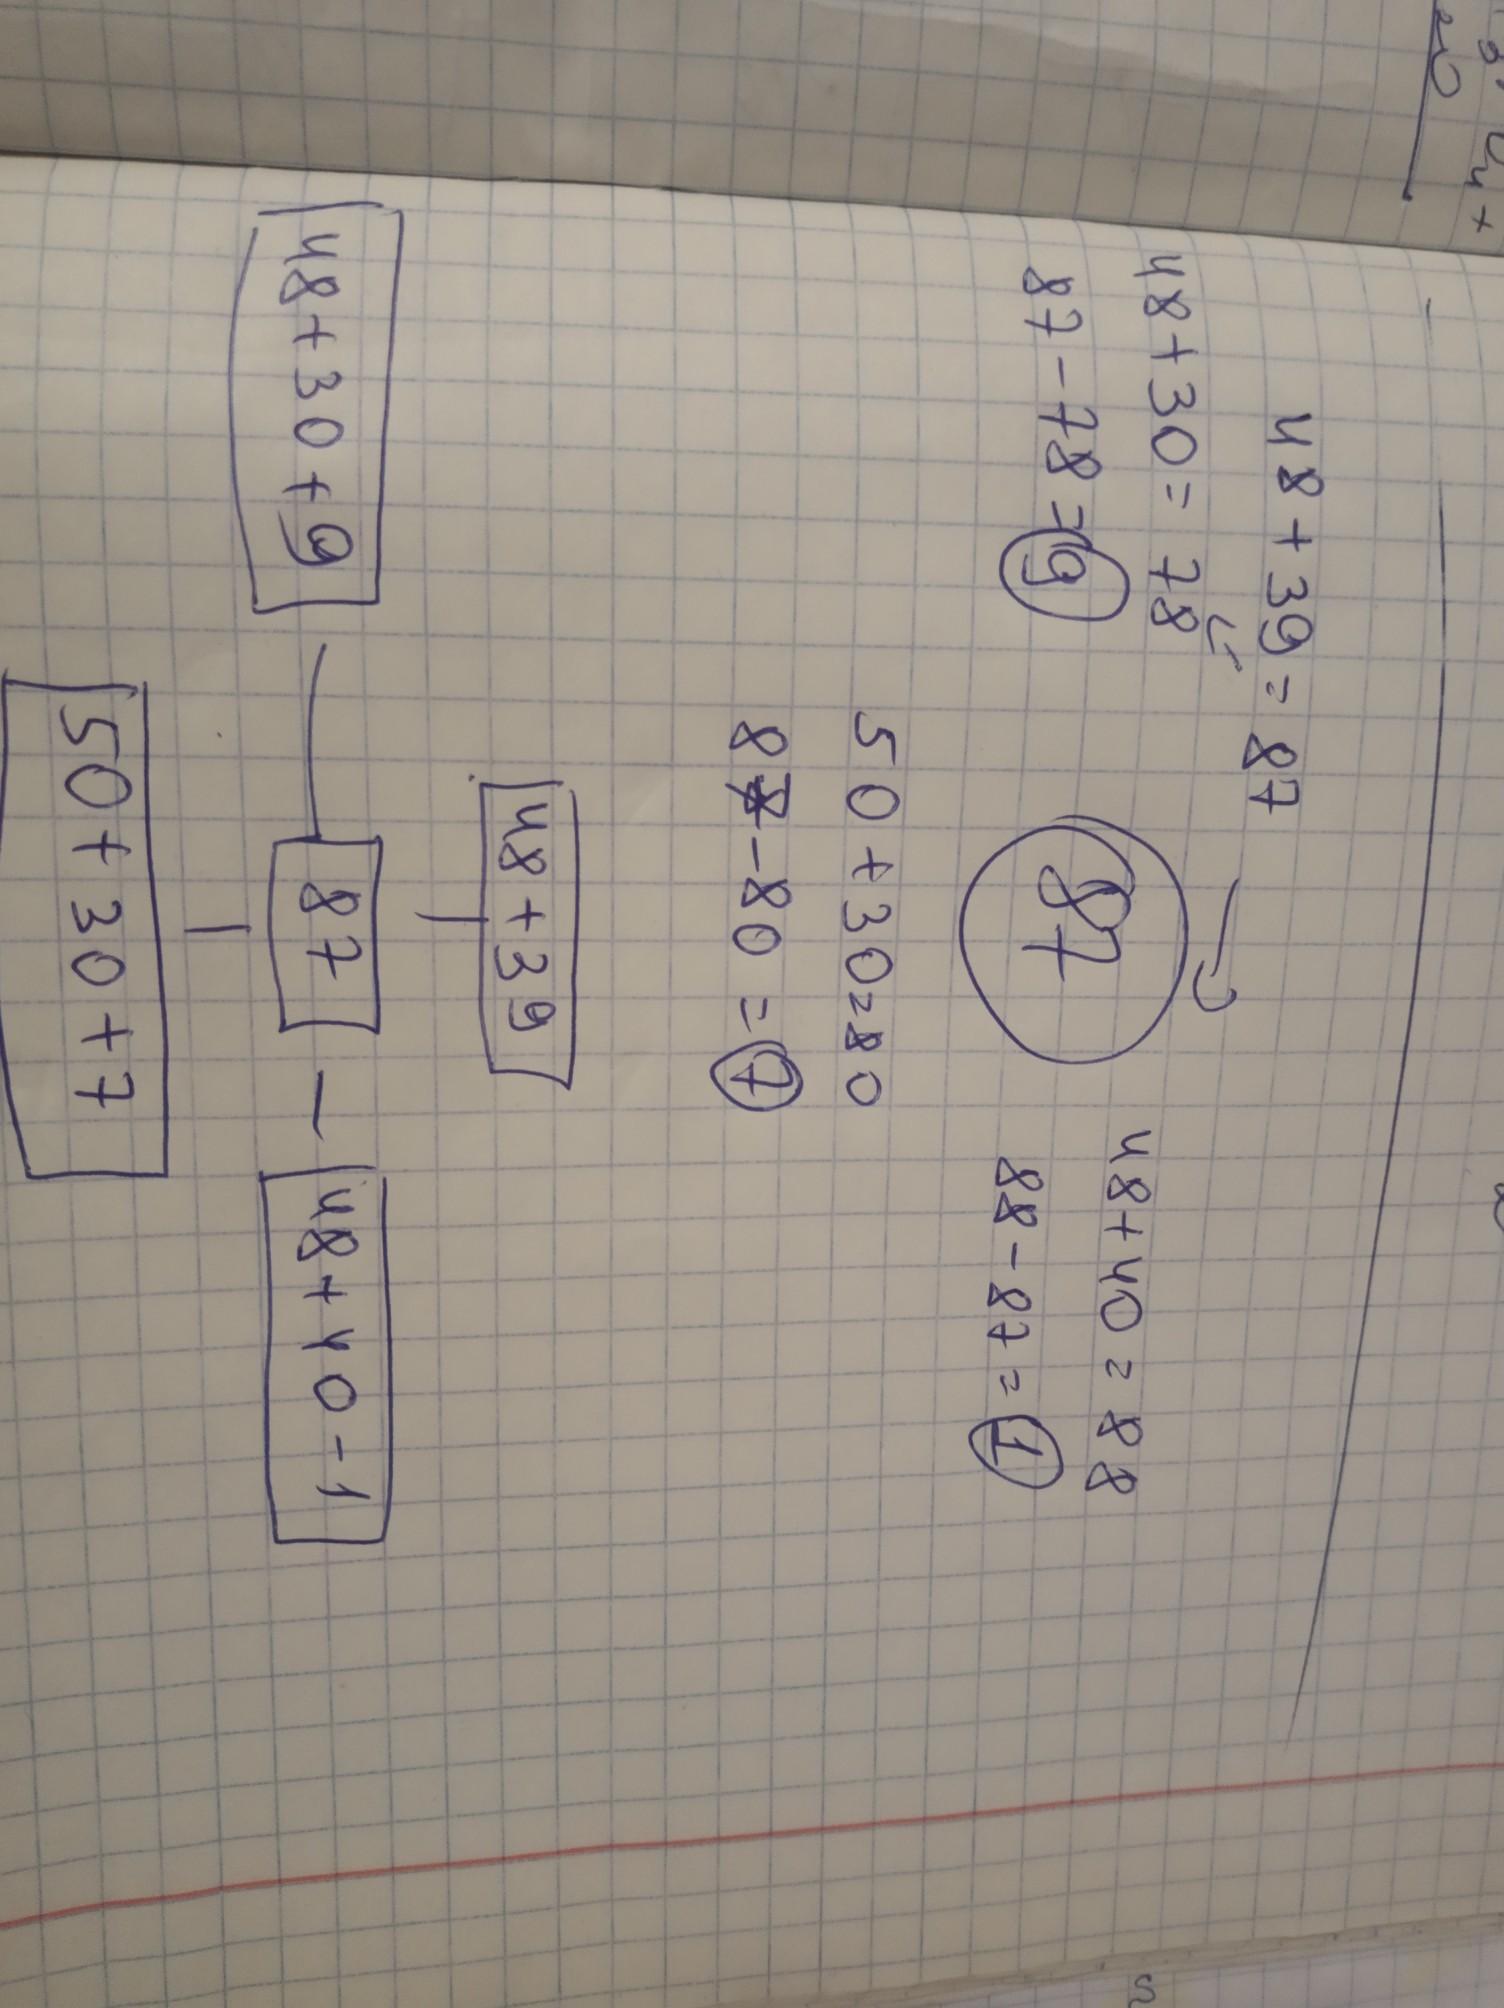 48+39=87
48+30=78
87-78=9
87
48+40=88
88-87=1
50+30=80
87-80=7
48+39
48+30+9
87
48+40-1
50+30+7